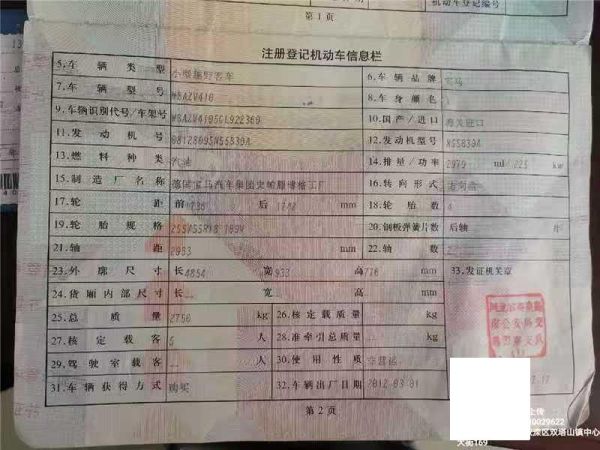 机动车登记编号
第1页
注册登记机动车信息栏
5.车辆类型 小型越野客车 6.车辆品牌 宝马
7.车辆型号 WBAZV410 8.车身颜色
9.车辆识别代号/车架号 10.国产/进口 海关进口
11.发动机号 12.发动机型号 N55B30A
13.燃料种类 汽油 14.排量/功率 2979 ml/ 225 kw
15.制造厂名称 德国宝马汽车集团史帕腾博格工厂 16.转向形式 方向盘
17.轮距 前 后 mm 18.轮胎数 4
19.轮胎规格 255/55R18 109V 20.钢板弹簧片数 后轴
21.轴距 2933 mm 22.轴数 2
23.外廓尺寸 长 4854 宽 933 高 776 mm 33.发证机关章
24.货厢内部尺寸 长 宽 高 mm
25.总质量 2750 kg 26.核定载质量 kg
27.核定载客 5 人 28.准牵引总质量 kg
29.驾驶室载客 人 30.使用性质 非营运
31.车辆获得方式 购买 32.车辆出厂日期 2012-03-01
第2页
上传
0029622
滦区双塔山镇中心
大街169